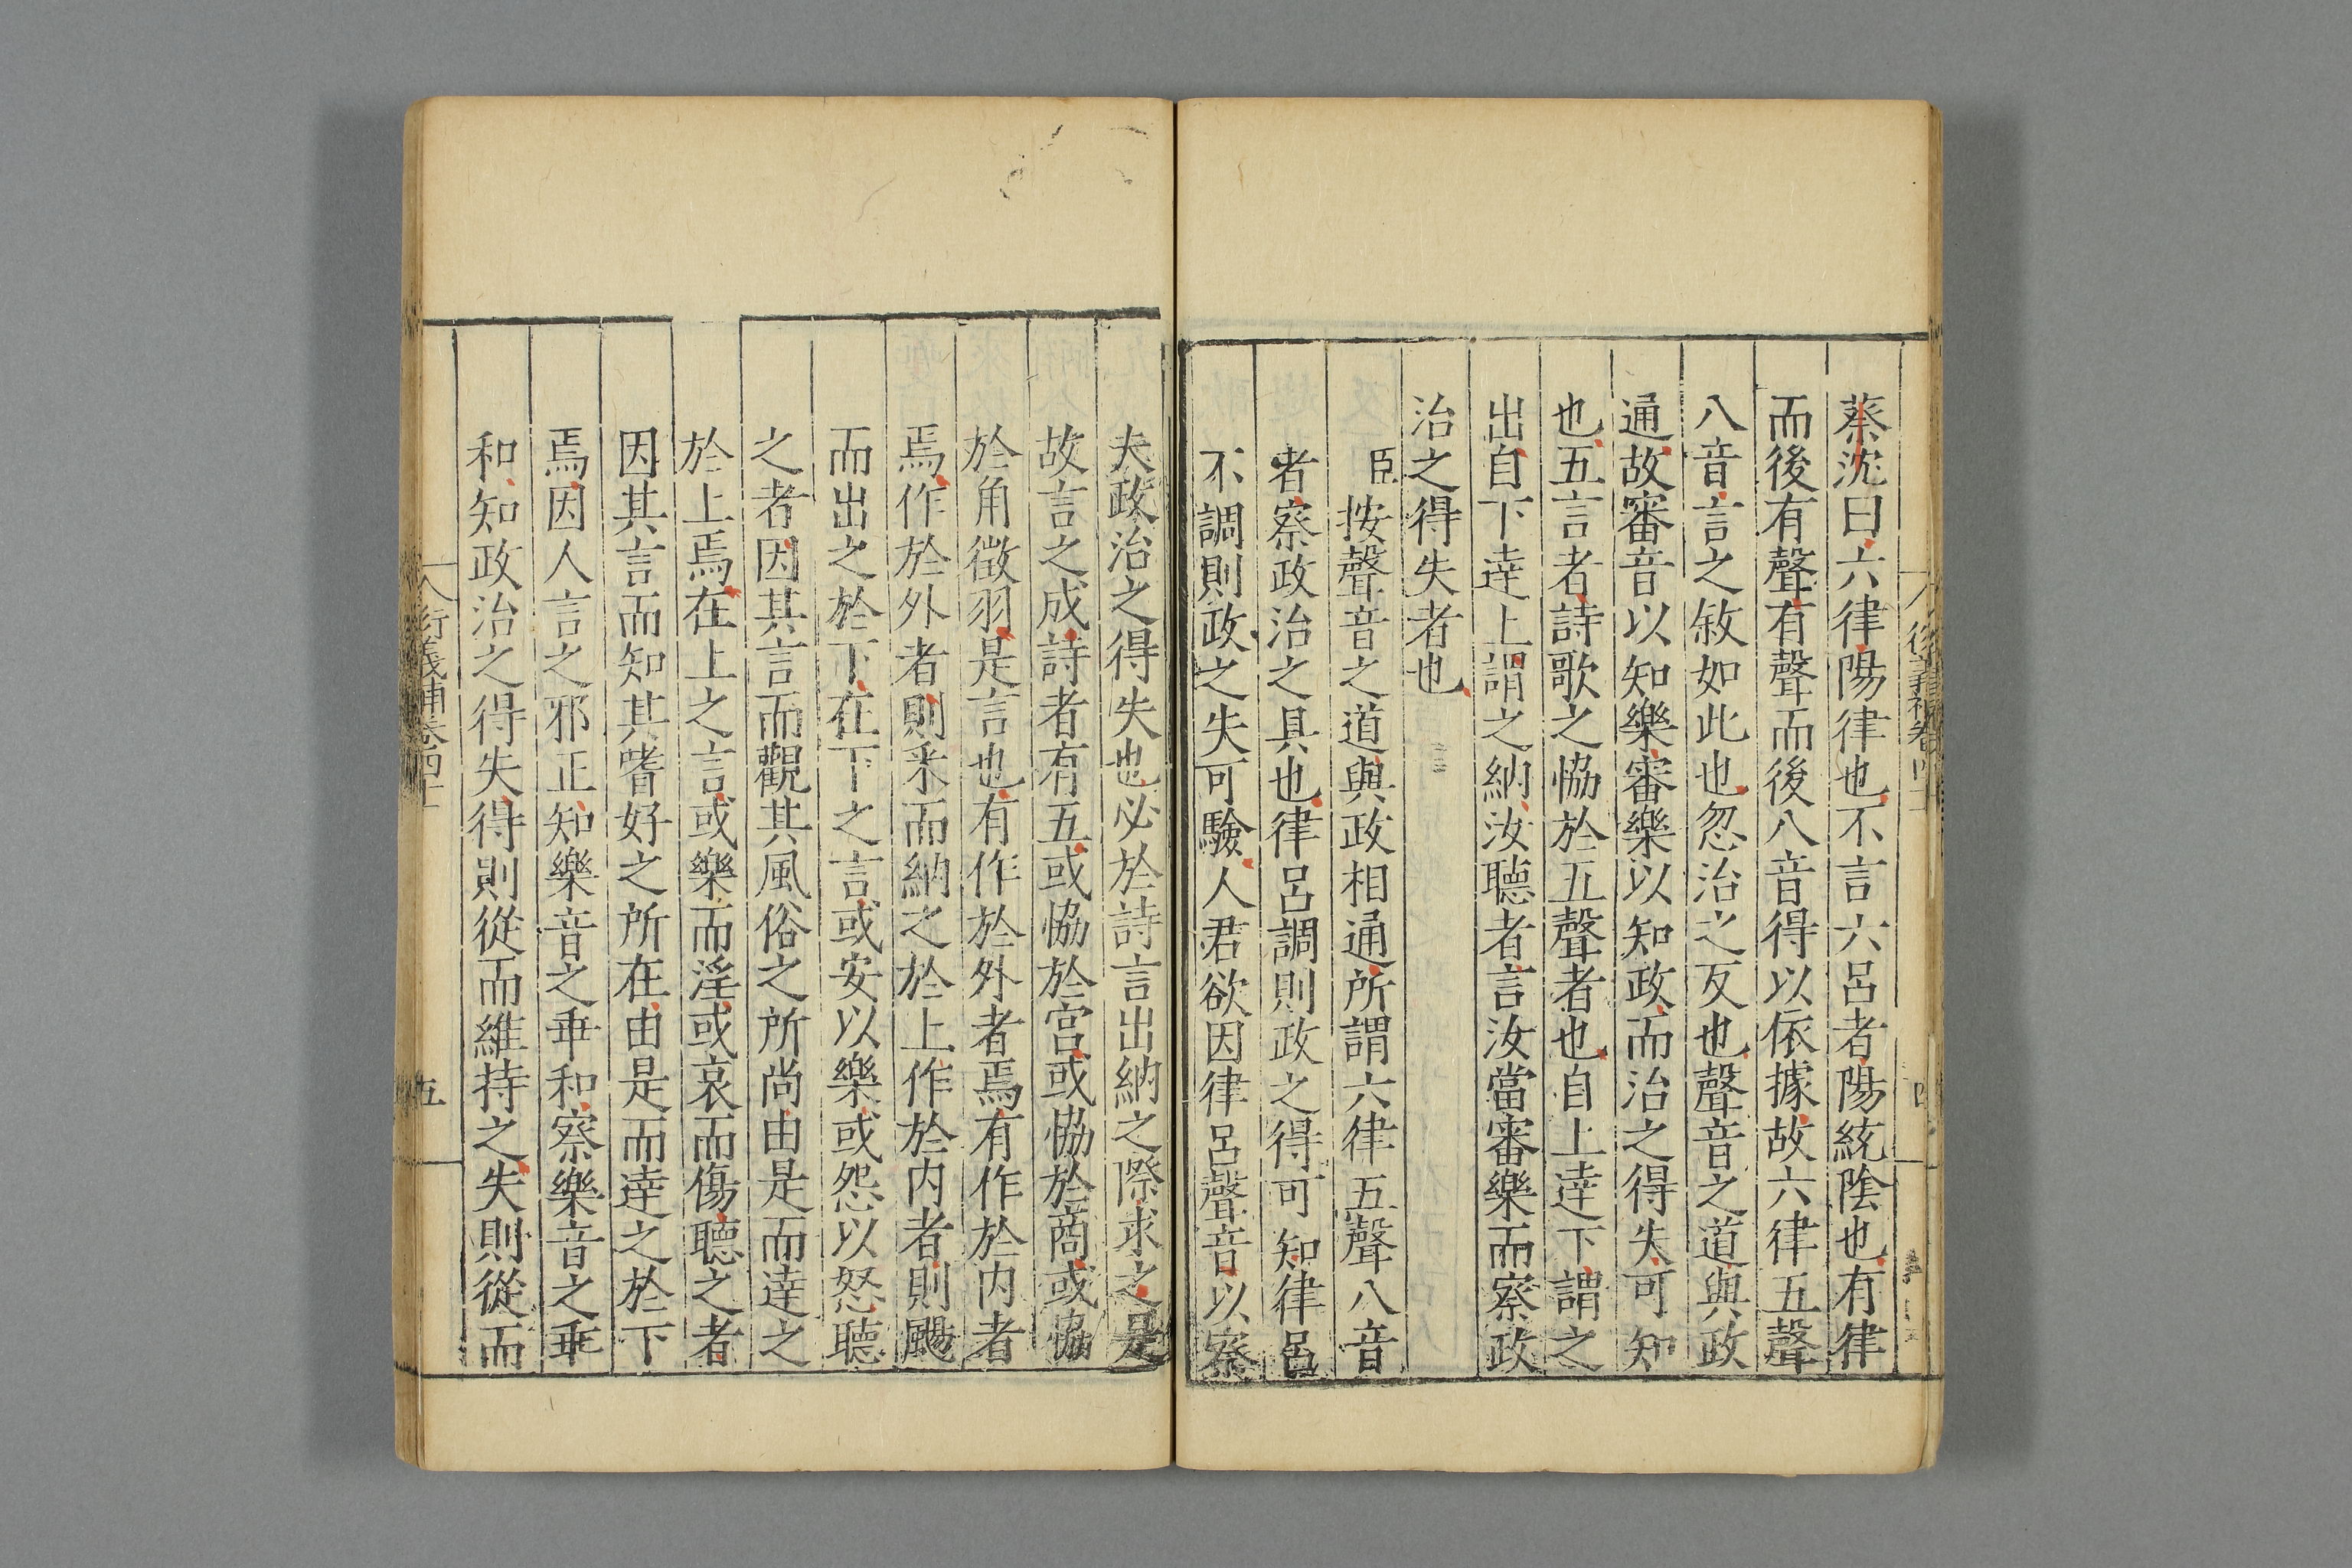 蔡沈曰六律陽律也不言六呂者陽統陰也有律
而後有聲有聲而後八音得以依據故六律五聲
八音言之敘如此也忽治之反也聲音之道與政
通故審音以知樂審樂以知政而治之得失可知
也五言者詩歌之恊於五聲者也自上達下謂之
出自下達上謂之納汝聽者言汝當審樂而察政
治之得失者也
臣按聲音之道與政相通所謂六律五聲八音
者察政治之具也律呂調則政之得可知律呂
不調則政之失可驗人君欲因律呂聲音以察
夫政治之得失也必於詩言出納之際求之是
故言之成詩者有五或恊於宮或恊於商或恊
於角徵羽是言也有作於外者焉有作於内者
焉作於外者則采而納之於上作於内者則颺
而出之於下在下之言或安以樂或怨以怒聽
之者因其言而觀其風俗之所尚由是而達之
於上焉在上之言或樂而淫或哀而傷聽之者
因其言而知其嗜好之所在由是而達之於下
焉因人言之邪正知樂音之乖和察樂音之乖
和知政治之得失得則從而維持之失則從而
衍義補卷四十
五